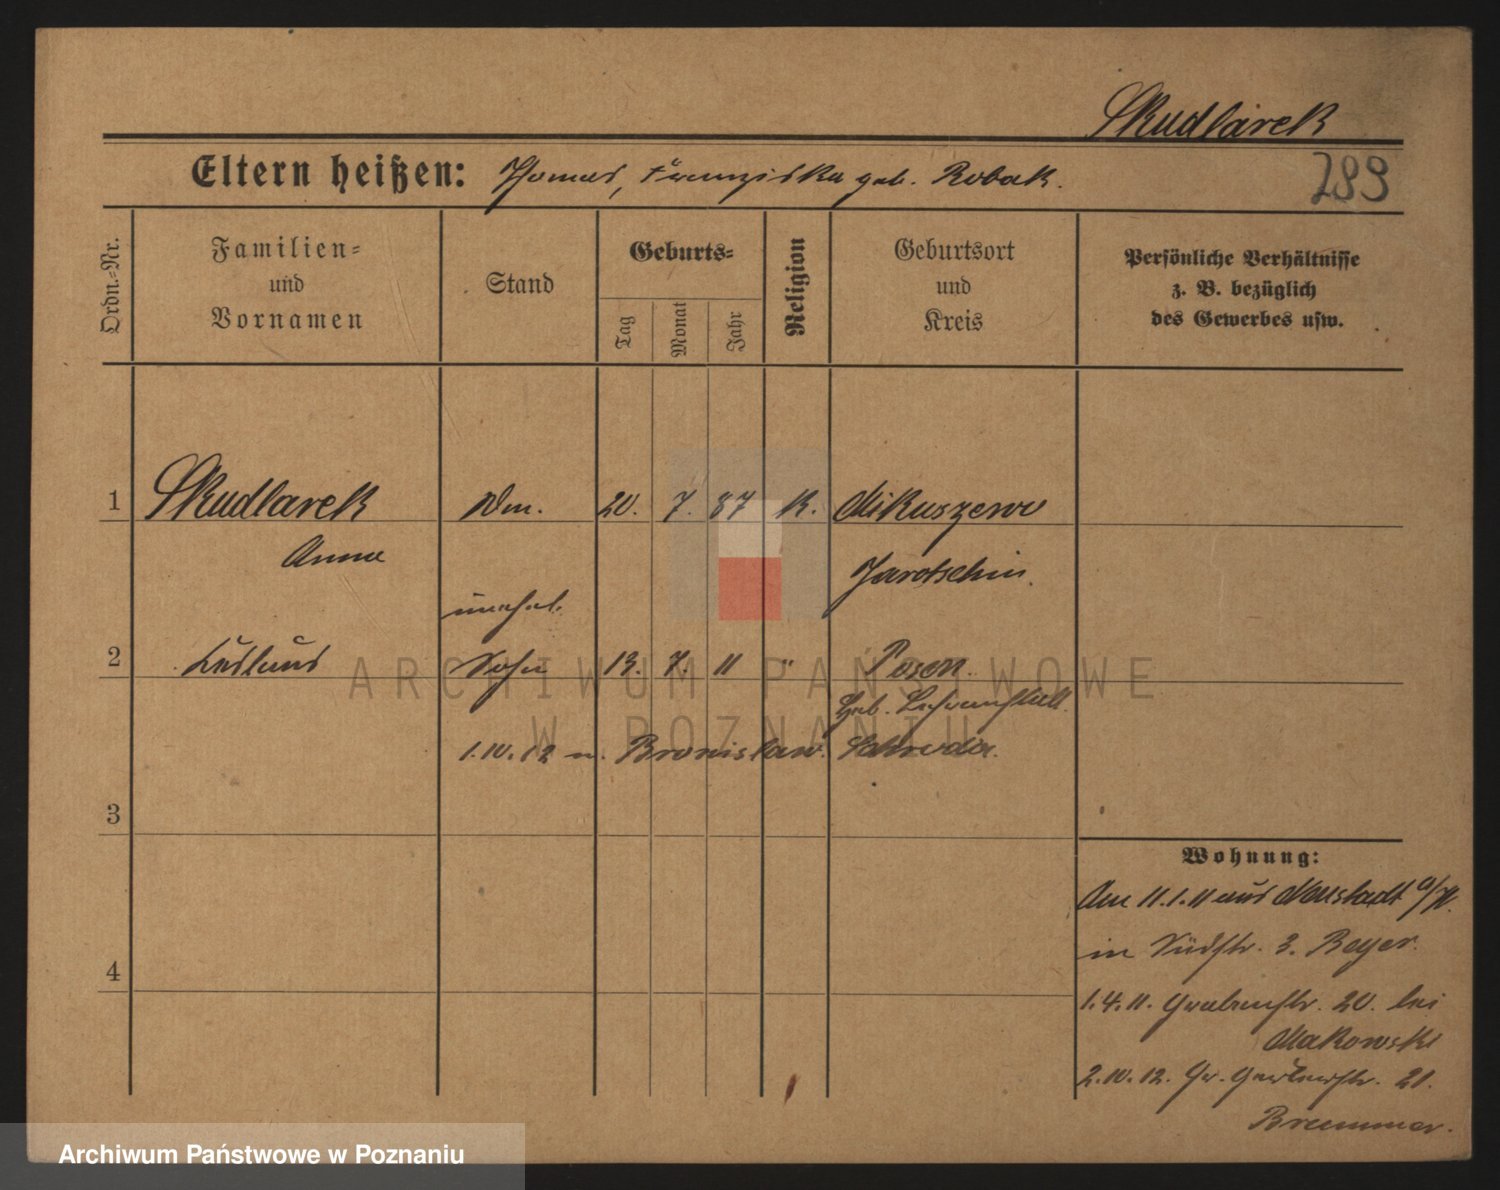 Skudlarek
Eltern heißen: Thomas, Franziska geb. Robak.
289
Ordn.-Nr.
Familien-
und
Vornamen
Stand
Geburts-
Tag
Monat
Jahr
Religion
Geburtsort
und
Kreis
Persönliche Verhältnisse
z. B. bezüglich
des Gewerbes usw.
1 Skudlarek 20. 7. 87 K. Mikuszewo
Anna
Jarotschin.
unehel.
2 Sohn 13. 7. 11 " Posen.
Geb.
1.10.12 n. Bronislaw. Schroda.
3
4
Wohnung:
Am 11.1.11 aus Neustadt a/W.
in Südstr. 3. Beyer.
1.4.11. Grabenstr. 20. bei
Makowski
2.10.12. Gr. Gerberstr. 21.
Brummer.
ARCHIWUM PAŃSTWOWE
W POZNANIU
Archiwum Państwowe w Poznaniu